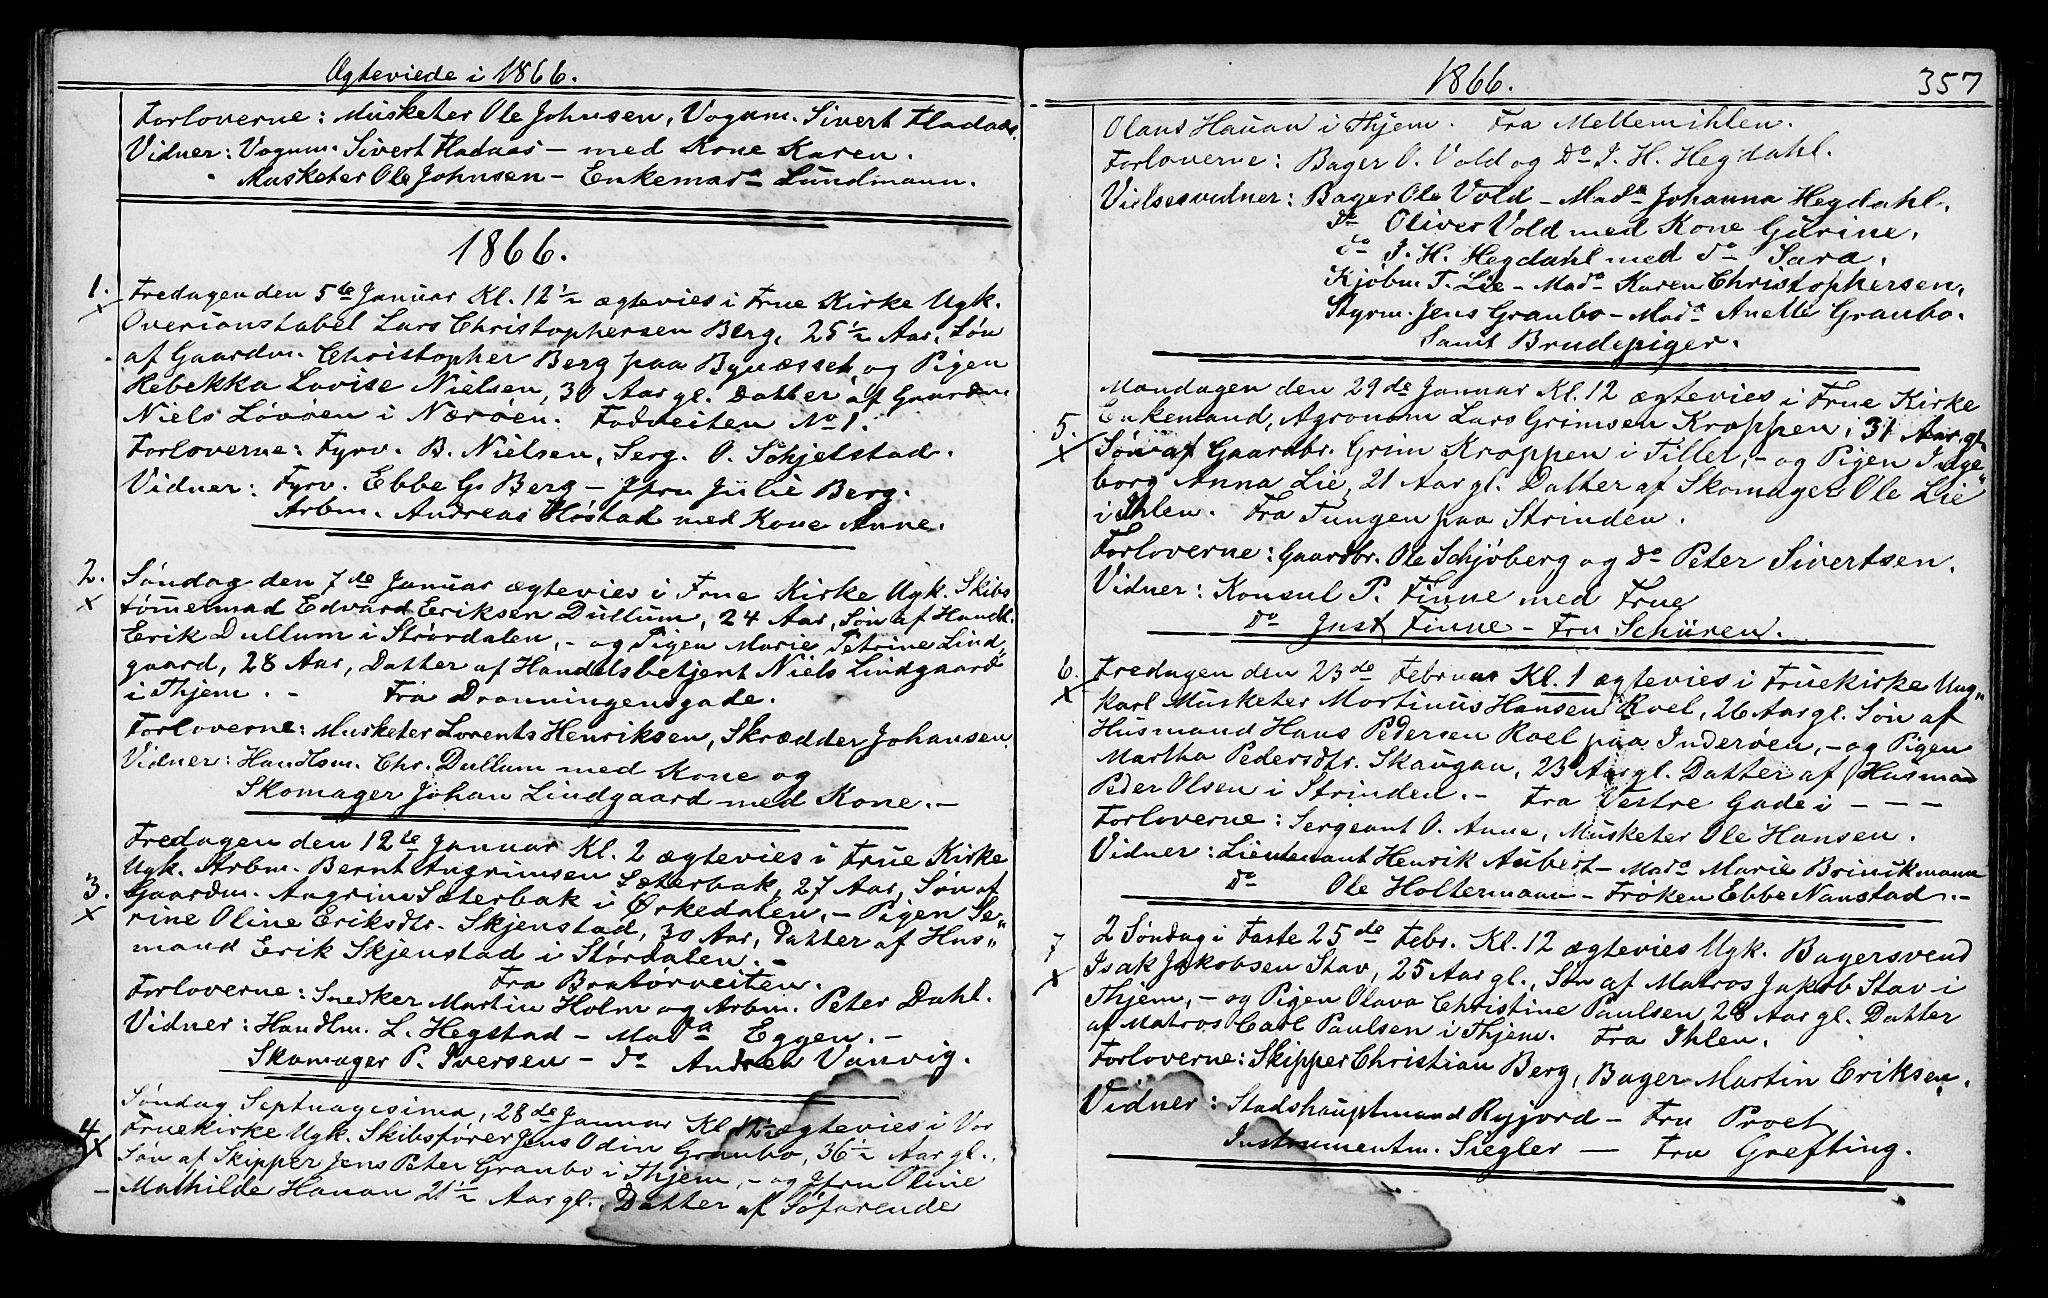 Ægteviede i 1866.
Forloverne: Musketer Ole Johnsen, Vognm. Sivert Fladaas.
Vidner: Vognm. Sivert Fladaas – med Kone Karen.
Musketer Ole Johnsen – Enkemada Lundmann.
1866.
1. Fredagen den 5te Januar Kl. 12½ ægtevies i Frue Kirke Ugk.
Overconstabel Lars Christophersen Berg, 25½ Aar, Søn
af Gaardm. Christopher Berg paa Bynæsset, og Pigen
Rebekka Lovise Nielsen, 30 Aar gl. Datter af Gaardm
Niels Løvøen i Nærøen. Fadveiten No 1.
Forloverne: Fyrv. B. Nielsen, Serg. O. Schjelstad.
Vidner: Fyrv. Ebbe G. Berg – Jfru Julie Berg.
Arbm. Andreas Høstad med Kone Anne.
2. Søndag den 7de Januar ægtevies i Frue Kirke Ugk. Skibs
x tømermad Edvard Eriksen Dullum, 24 Aar, Søn af Handl.
Erik Dullum i Størdalen, – og Pigen Marie Petrine Lind"
gaard, 28 Aar, Datter af Handelsbetjent Niels Lindgaard
i Thjem. – Fra Dronningensgade.
Forloverne: Musketer Lorents Henriksen, Skrædder Johansen.
Vidner: Handlsm. Chr. Dullum med Kone og
Skomager Johan Lindgaard med Kone. –
Fredagen den 12te Januar Kl. 2 ægtevies i Frue Kirke
Ugk. Arbm. Bernt Angrimsen Sæterbak, 27 Aar, Søn af
3. Gaardm. Angrim Sæterbak i Ørkedalen, – Pigen Se"
x rine Oline Eriksdtr. Skjenstad, 30 Aar, Datter af Hus"
mand Erik Skjenstad i Størdalen. –
Fra Bratørveiten.
Forloverne: Snedker Martin Holm og Arbm. Peter Dahl.
Vidner: Handlm. L. Hegstad – Mada Eggen. –
Skomager P. Iversen – do Andrea Vanvig.
Søndag Septuagesima, 28de Januar Kl. ægtevies i Vor
4. Fruekirke Ugk. Skibsfører Jens Odin Graubo, 36½ Aar gl.,
x Søn af Skipper Jens Peter Graubo i Thjem, – og Jfru Oline
– Mathilde Hauan 21½ Aar gl. Datter af Søfarende
1866. 357
Olaus Hauan i Thjem. Fra Mellemihlen.
Forloverne: Bager O. Vold og Do J. H. Hegdahl.
Vielsesvidner: Bager Ole Vold – Mada Johanna Hegdahl.
do Oliver Vold med Kone Gurine.
do J. H. Hegdahl med do Sara.
Kjøbm T. Lie – Mada Karen Christophersen,
Styrm. Jens Graubo – Mada Anette Graubo.
Samt Brudepiger.
Mandagen den 29de Januar Kl. 12 ægtevies i Frue Kirke
5. Enkemand, Agronom Lars Grimsen Kroppen, 31 Aar gl.
x Søn af Gaardbr. Grim Kroppen i Tiller, – og Pigen Inge"
borg Anna Lie, 21 Aar gl. Datter af Skomager Ole Lie
i Ihlen. Fra Tungen paa Strinden.
Forloverne: Gaardbr. Ole Schjøberg og Do Peter Sivertsen.
Vidner: Konsul P. Finne med Frue
do Just Finne – Fru Schüren.
6. Fredagen den 23de Februar Kl. 1 ægtevies i Fruekirke Ung"
x karl Musketer Martinus Hansen Roel, 26 Aar gl. Søn af
Husmand Hans Pedersen Roel paa Inderøen, – og Pigen
Martha Pedersdtr. Skaugan, 23 Aar gl. Datter af Husmad
Peder Olsen i Strinden. – Fra Vestre Gade i – – –
Forloverne: Sergeant O. Anne, Musketer Ole Hansen.
Vidner: Lieutenant Henrik Aubert – Mada Marie Brinikmann
do Ole Holtermann – Frøken Ebbe Nanstad. –
7 2 Søndag i Faste 25de Febr. Kl. 12 ægtevies Ugk. Bagersvend
x Isak Jakobsen Stav, 25 Aar gl., Søn af Matros Jakob Stav i
Thjem, – og Pigen Olava Christine Paulsen 28 Aar gl. Datter
af Matros Carl Paulsen i Thjem. Fra Ihlen.
Forloverne: Skipper Christian Berg, Bager Martin Eriksen.
Vidner: Stadshauptmand Ryjord – Fru Proet
Instrumentm. Siegler – Fru Grefting.